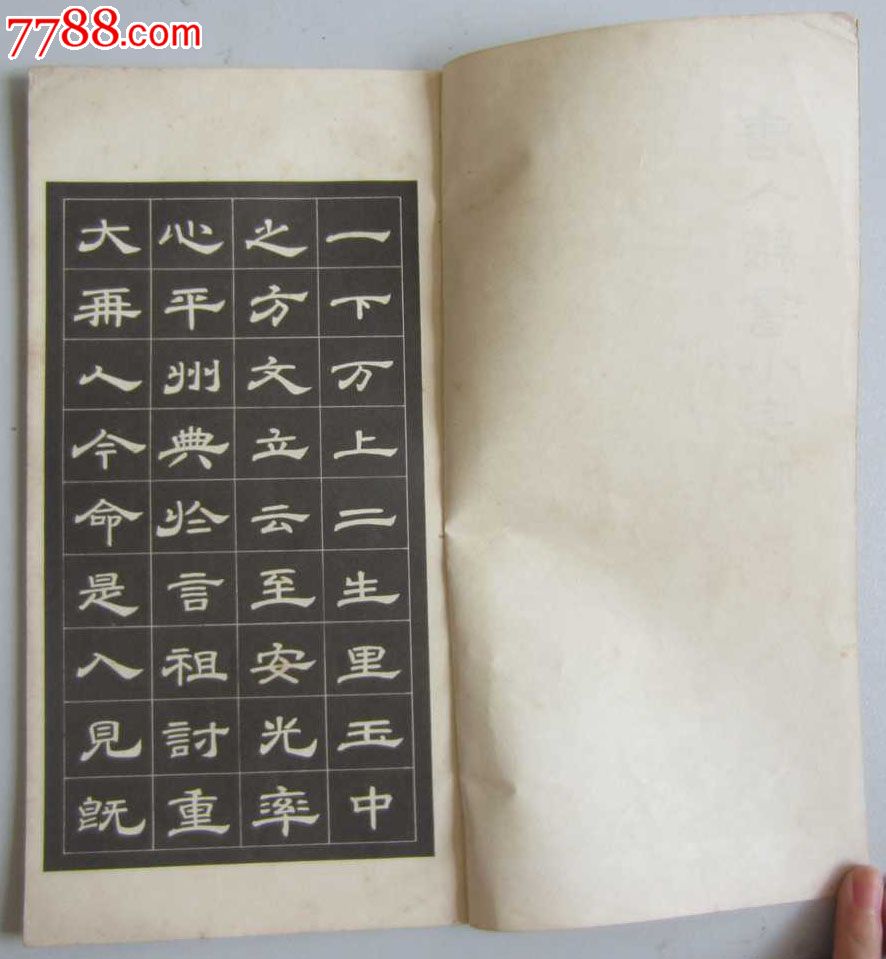 7788.com
一下万上二生里玉中
之方文立云至安光率
心平州典於言祖討重
大再人今命是入見既